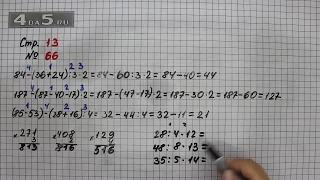 4DA5.RU
Стр. 13
№ 66
84-(36+24):3·2=84-60:3·2=84-40=44
187-(87-40-17)·2=187-(47-17)·2=187-30·2=187-60=127
(85-53)-(28+16):4=32-44:4=32-11=21
×271 ×408 ×129
3 2 4
813 816 516
28:4·12=
48:8·13=
35:5·14=